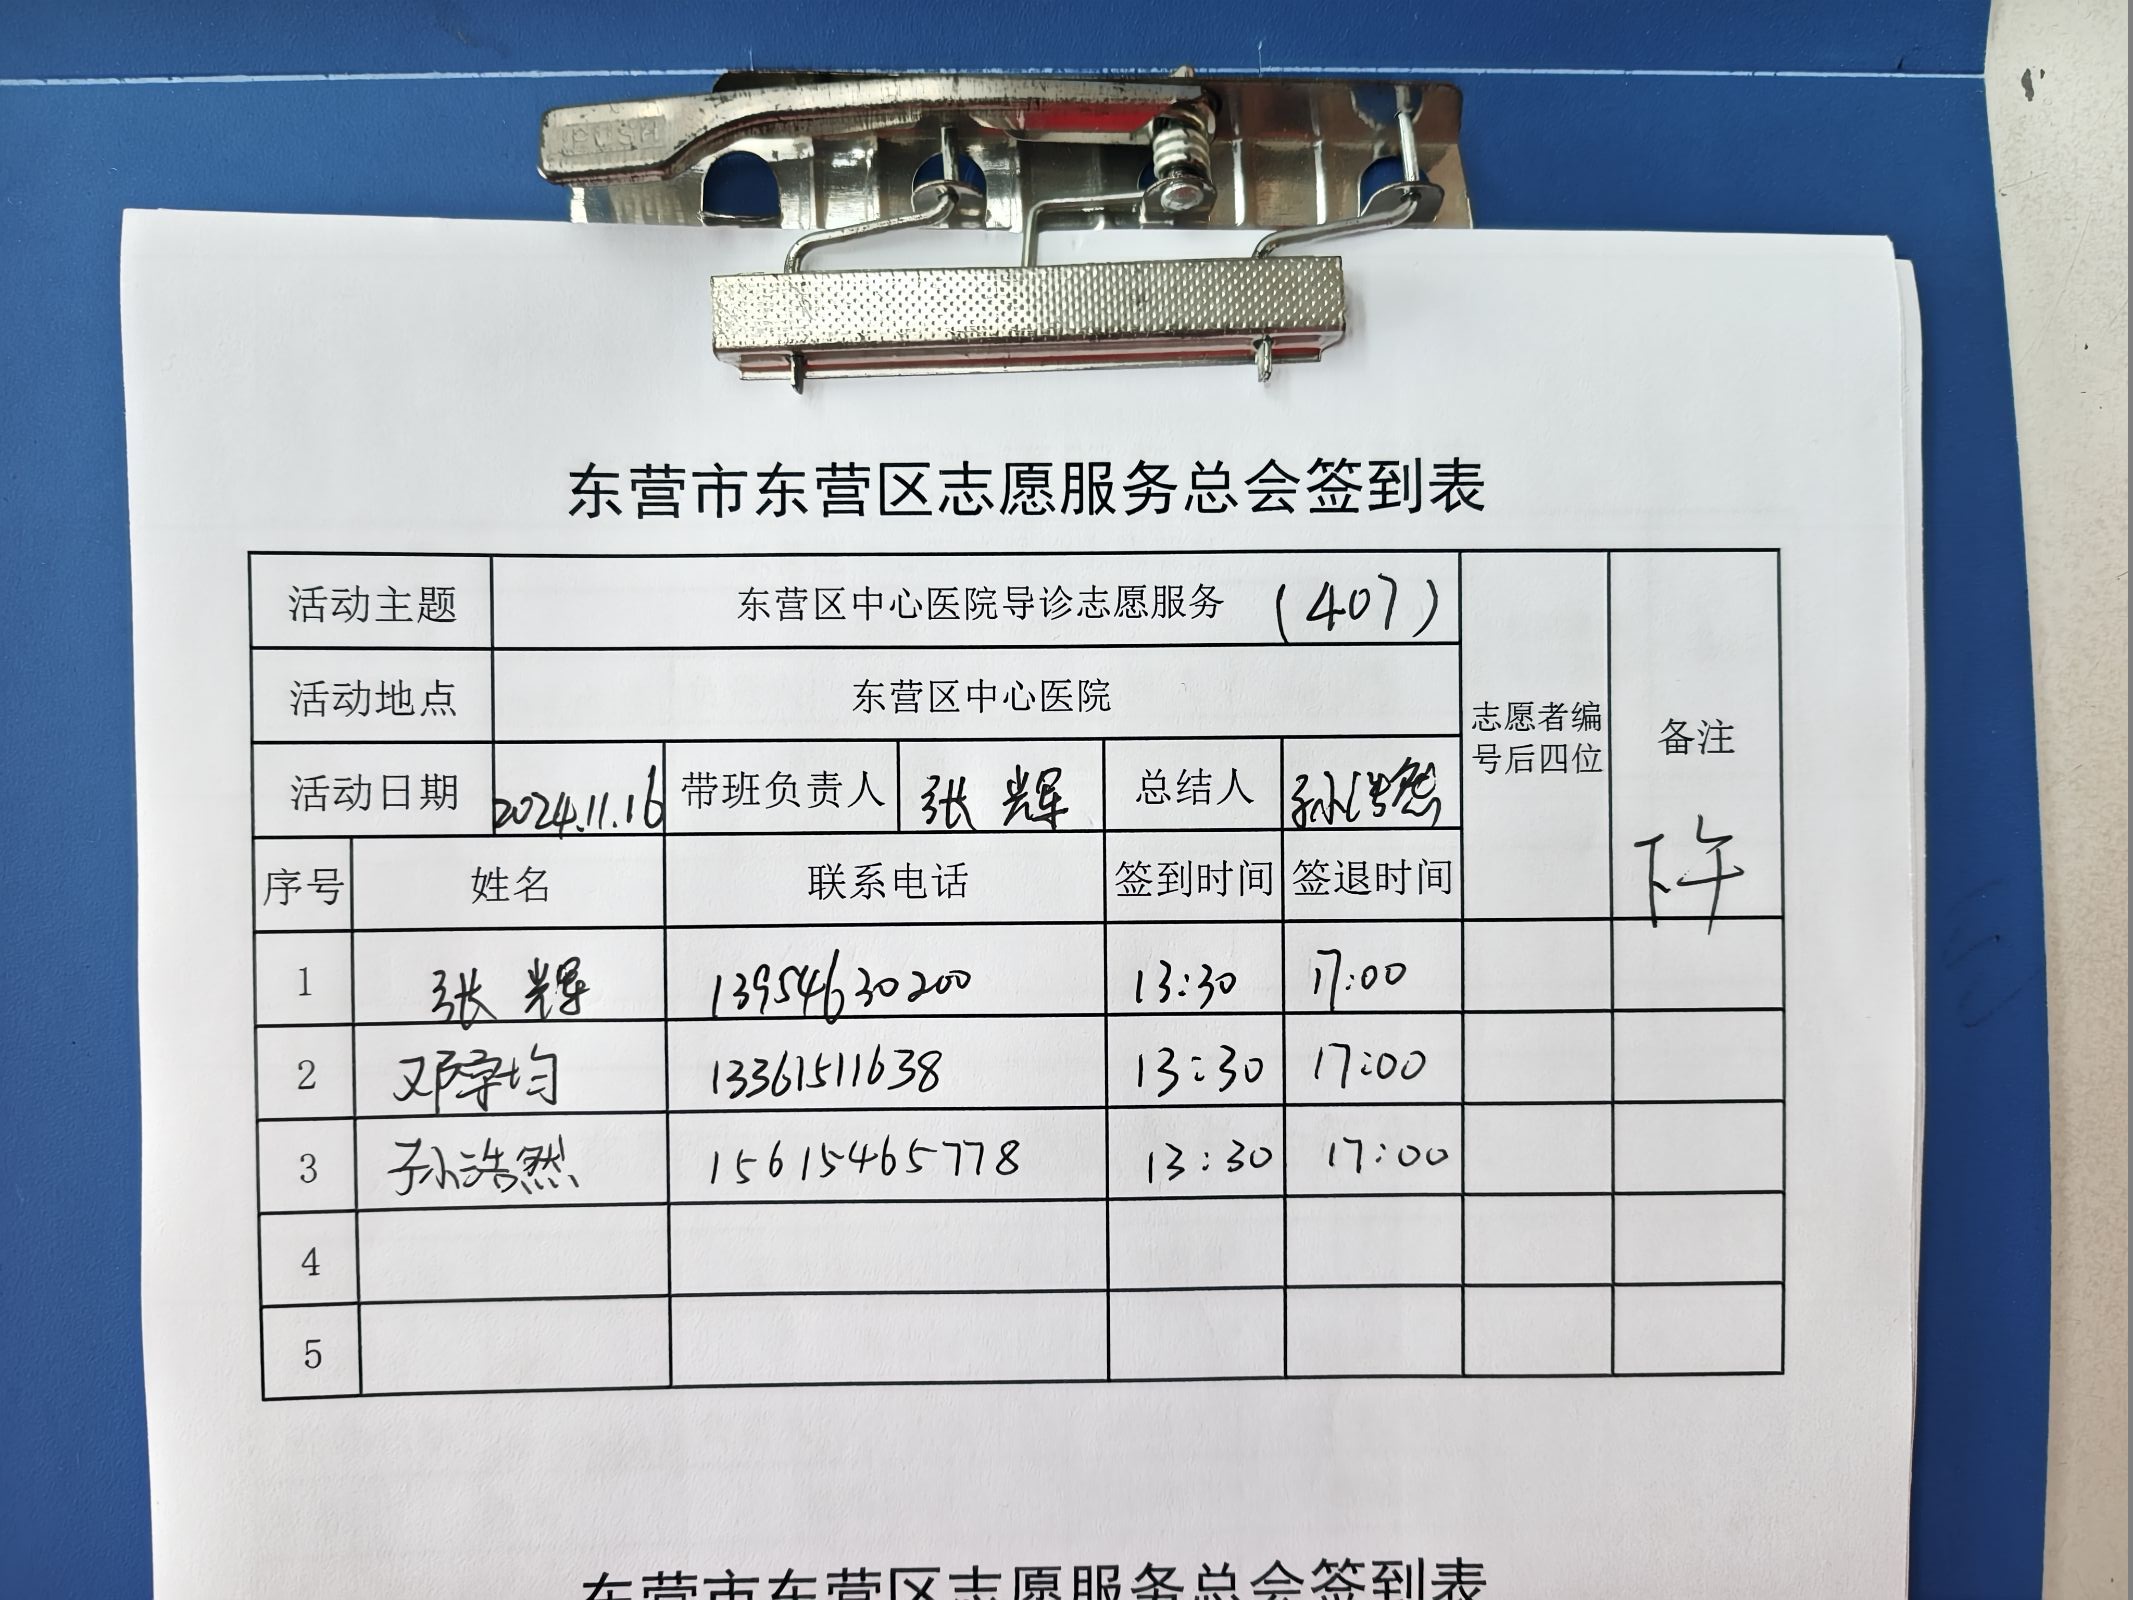 PUSH
东营市东营区志愿服务总会签到表
活动主题 东营区中心医院导诊志愿服务 (407)
活动地点 东营区中心医院
志愿者编号后四位 备注
活动日期 2024.11.16 带班负责人 张辉 总结人 孙浩然
下午
序号 姓名 联系电话 签到时间 签退时间
1 张辉 13954630200 13:30 17:00
2 邓宗均 13361511638 13:30 17:00
3 孙浩然 15615465778 13:30 17:00
4
5
东营市东营区志愿服务总会签到表